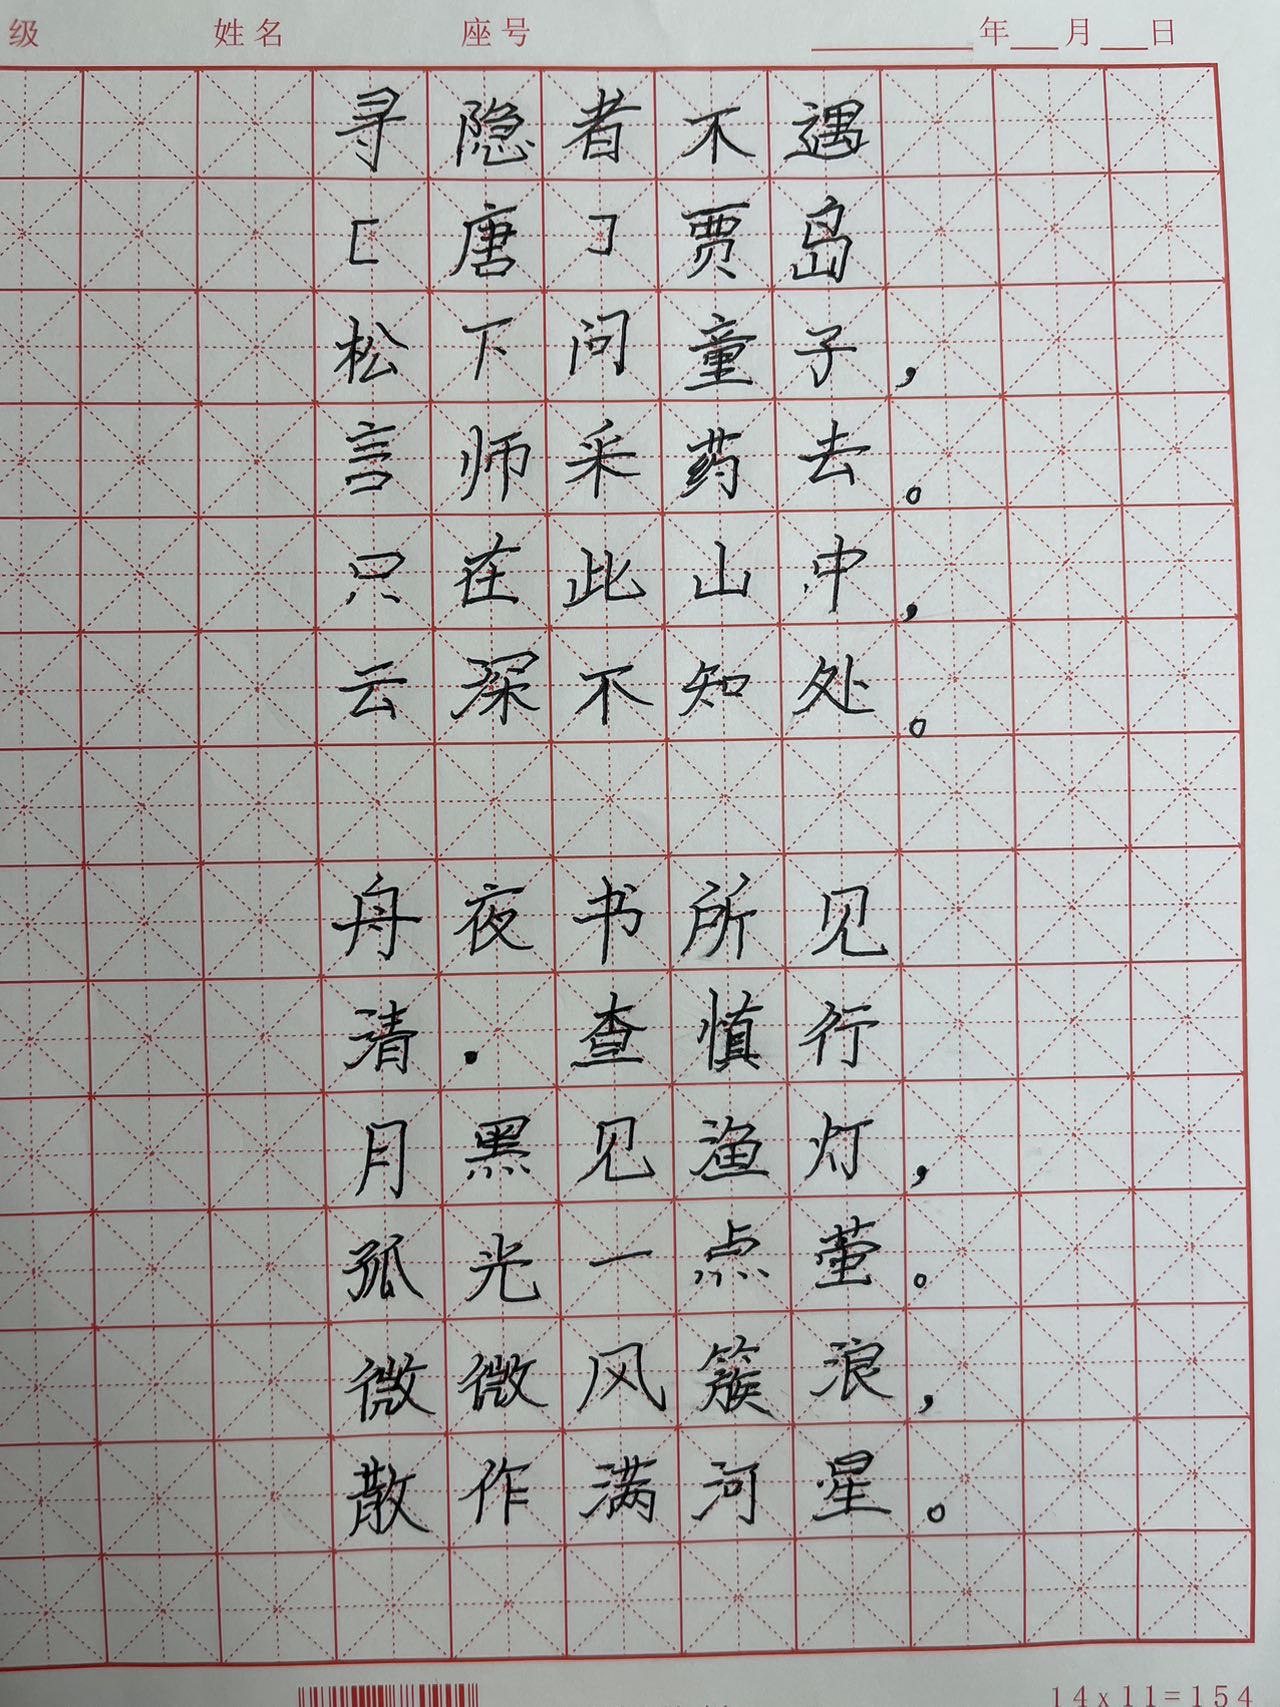 级 姓名 座号 年 月 日
寻隐者不遇
[唐]贾岛
松下问童子，
言师采药去。
只在此山中，
云深不知处。
舟夜书所见
清·查慎行
月黑见渔灯，
孤光一点萤。
微微风簇浪，
散作满河星。
14x11=154